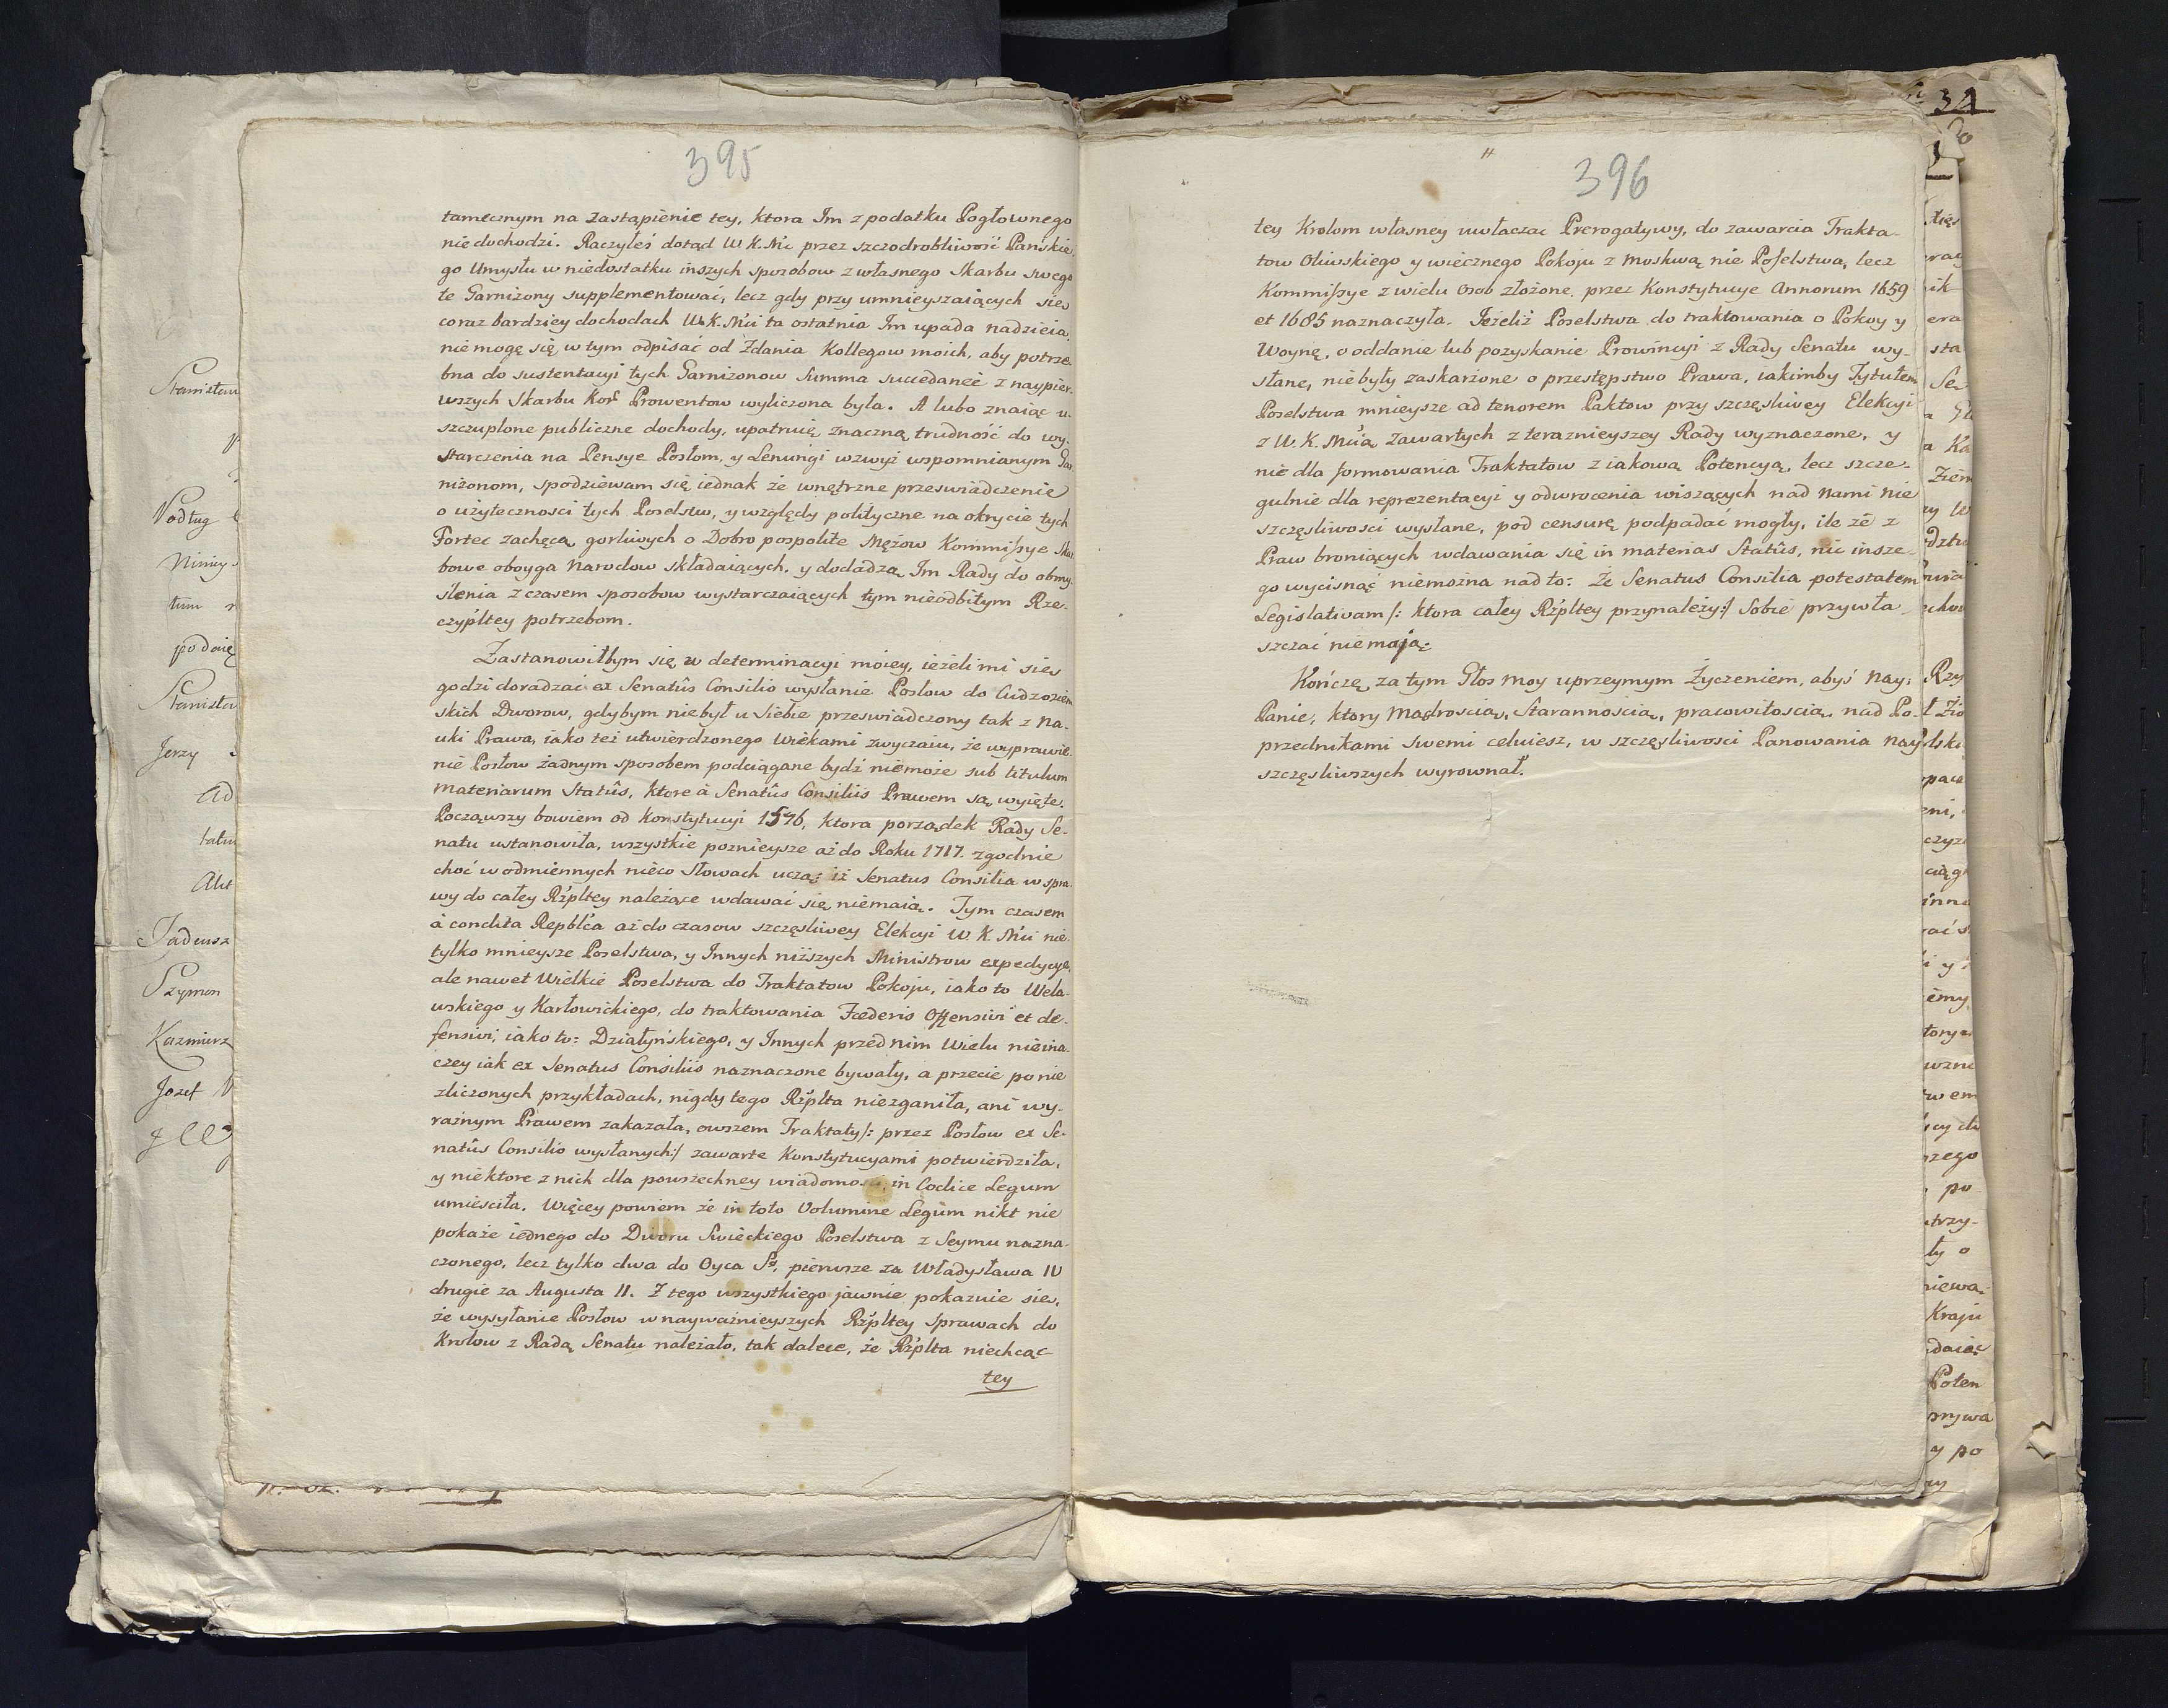 395
tamecznym na zastąpienie tey, ktora Im z podatku Pogłownego
niedochodzi. Raczyłeś dotąd W K. Mć przez szczodrobliwość Pańskie,
go Umysłu w niedostatku inszych sposobow z własnego Skarbu swego
te Garnizony supplementować, lecz gdy przy umnieyszaiących sie
coraz bardziey dochodach W. K. Mći ta ostatnia Im upada nadzieia,
nie mogę się w tym odpisać od Zdania Kollegow moich, aby potrze,
bna do sustentacyi tych Garnizonow Summa succedanee z naypier,
wszych Skarbu Kor. Prowentow wyliczona była. A lubo znaiąc u,
szczuplone publiczne dochody, upatruię znaczną trudność do wy,
starczenia na Pensye Posłom, y Lenungi wzwyż wspomnianym Gar,
nizonom, spodziewam się iednak że wnętrzne przeswiadczenie
o użytecznosci tych Poselstw, y względy polityczne na okrycie tych
Fortec zachęcą gorliwych o Dobro pospolite Mężow Kommissye Skar,
bowe oboyga Narodow składaiących, y dodadzą Im Rady do obmy,
ślenia z czasem sposobow wystarczaiących tym nieodbitym Rze,
czypltey potrzebom.
Zastanowiłbym się w determinacyi moiey, ieżeli mi sie
godzi doradzać ex Senatûs Consilio wysłanie Posłow do Cudzoziem
skich Dworow, gdybym niebył u Siebie przeswiadczony tak z Na,
uki Prawa, iako też utwierdzonego Wiekami zwyczaiu, że wyprawie,
nie Posłow żadnym sposobem podciągane bydź niemoże sub titulum
materiarum Statûs, ktore à Senatûs Consiliis Prawem są wyięte.
Począwszy bowiem od Konstytucyi 1576, ktora porządek Rady Se,
natu ustanowiła, wszystkie poznieysze aż do Roku 1717. zgodnie
choć w odmiennych nieco słowach uczą: iż Senatus Consilia w spra,
wy do całey Rżpltey należące wdawać się niemaią. Tym czasem
à condita Repblca aż do czasow szczęsliwey Elekcyi W K. Mći nie,
tylko mnieysze Poselstwa, y Innych niższych Ministrow expedycye,
ale nawet Wielkie Poselstwa do Traktatow Pokoju, iako to Wela,
wskiego y Karłowickiego, do traktowania Fœderis Offensivi et de,
fensivi, iako to: Działyńskiego, y Innych przed nim Wielu nieina,
czey iak ex Senatus Consiliis naznaczone bywały, a przecie po nie
zliczonych przykładach, nigdy tego Rżplta niezganiła, ani wy,
raźnym Prawem zakazała, owszem Traktaty /: przez Posłow ex Se,
natûs Consilio wysłanych :/ zawarte Konstytucyami potwierdziła,
y niektore z nich dla powszechney wiadomosci, in Codice Legum
umieściła. Więcey powiem że in toto Volumine Legum nikt nie
pokaże iednego do Dworu Swieckiego Poselstwa z Seymu nazna,
czonego, lecz tylko dwa do Oyca Sgo. pierwsze za Władysława IV
drugie za Augusta II. Z tego wszystkiego jawnie pokazuie sie,
że wysyłanie Posłow w nayważnieyszych Rżpltey Sprawach do
Krolow z Radą Senatu należało, tak dalece, że Rżplta niechcąc
tey
396
tey Krolom własney uwłaczac Prerogatywy, do zawarcia Trakta-
tow Oliwskiego y wiecznego Pokoju z Moskwą nie Poselstwa, lecz
Kommissye z wielu Osob złożone, przez Konstytucye Annorum 1659
et 1685 naznaczyła. Jeżeliż Poselstwa do traktowania o Pokoy y
Woynę, o oddanie lub pozyskanie Prowincyi z Rady Senatu wy-
słane, niebyły zaskarżone o przestępstwo Prawa, iakimby Tytułem
Poselstwa mnieysze ad tenorem Paktow przy szczęsliwey Elekcyi
z W. K. Mcią zawartych z teraznieyszey Rady wyznaczone, y
nie dla formowania Traktatow z iakową Potencyą, lecz szcze,
gulnie dla reprezentacyi y odwrocenia wiszących nad Nami Nie
szczęsliwosci wysłane, pod censurę podpadać mogły, ile że z
Praw broniących wdawania się in materias Statûs, nic insze-
go wycisnąć niemożna nad to: Że Senatus Consilia potestatem
Legislativam /: ktora całey Rżpltey przynależy :/ Sobie przywła-
szczać niemają:
Kończę za tym Głos moy uprzeymym Życzeniem, abyś Nay:
Panie, ktory Mądroscią, Starannoscią, pracowitoscią nad Po-
przednikami Swemi celuiesz, w szczęsliwosci Panowania Nay
szczęsliwszych wyrownał.
34
Podług
Jerzy
Tadeusz
Szymon
Kazimierz
Jozef